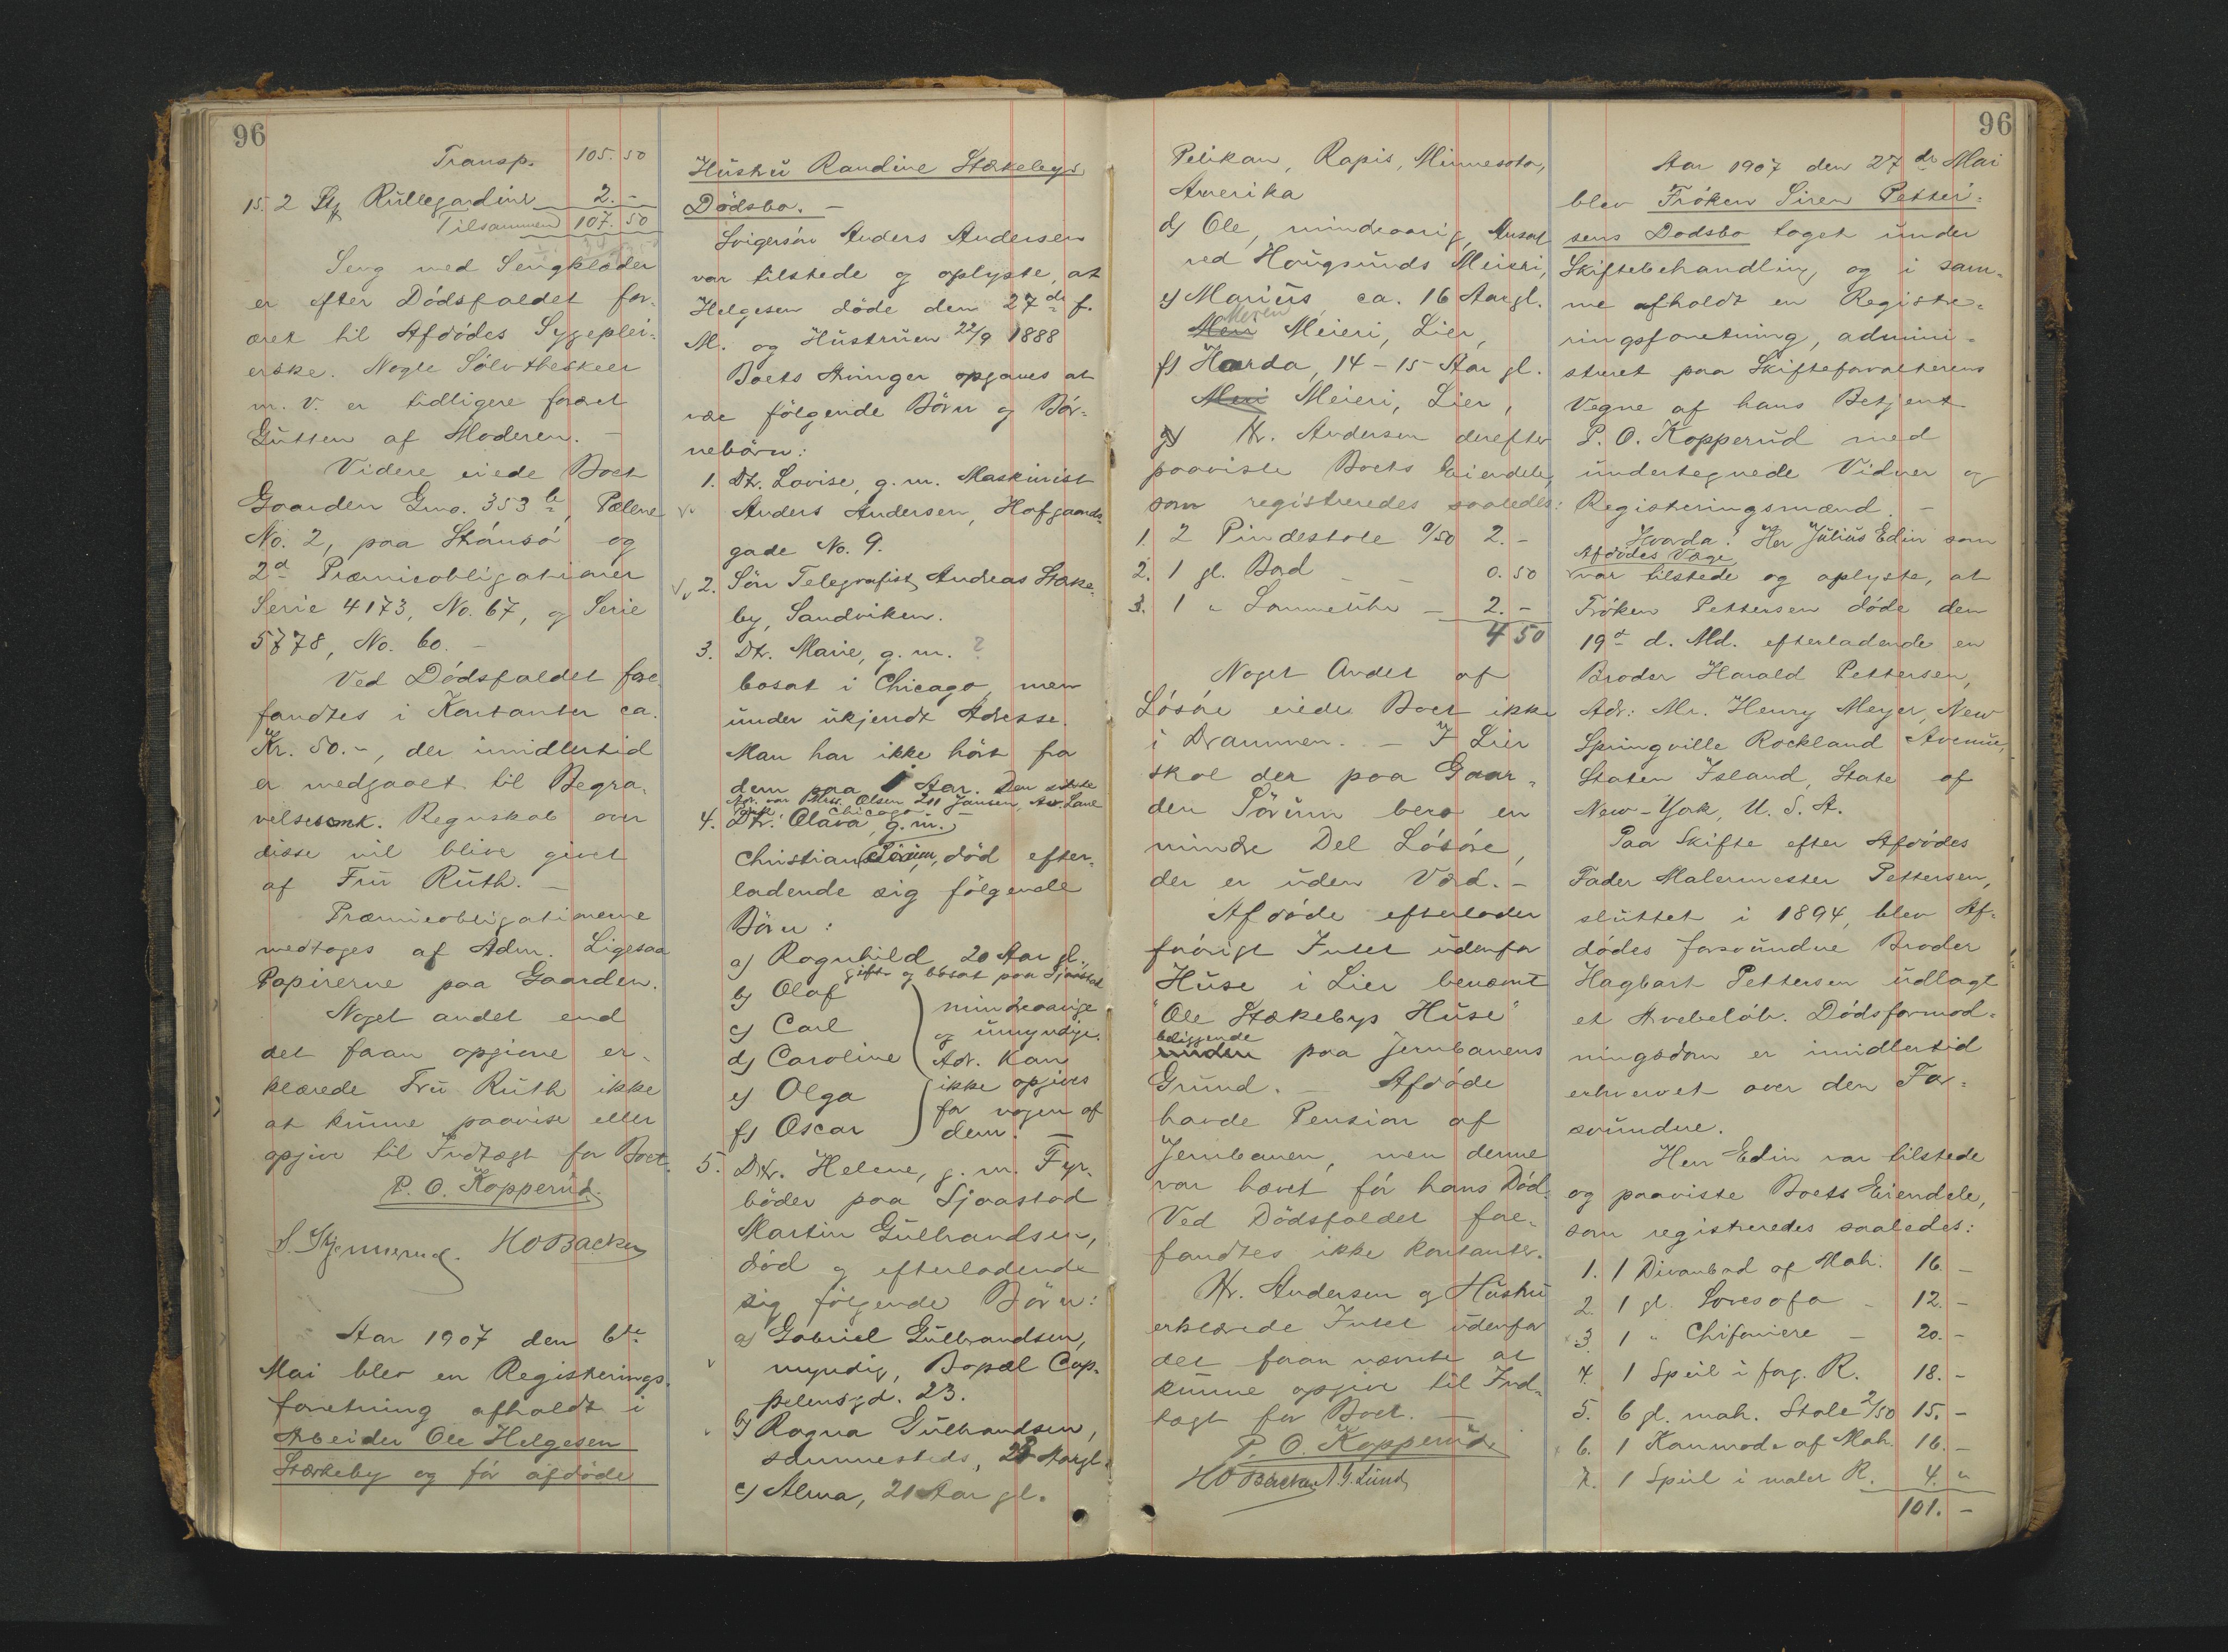 96
Transp. 105.50
15. 2 St Rullegardiner 2.-
Tilsammen 107.50
Seng med Sengklæder
er efter Dödsfaldet for-
æret til Afdödes Sygeplei-
erske. Nogle Sölvtheskeer
m. v. er tidligere foræret
Gutten af Moderen. -
Videre eiede Boet
Gaarden Gno. 353 b, Pælene
No. 2, paa Strömsö og
2 Præmieobligationer
Serie 4173, No. 67, og Serie
5778, No. 60. -
Ved Dödsfaldet fore-
fandtes i Kontanter ca.
Kr. 50.-, der imidlertid
er medgaaet til Begra-
velsesomk. Regnskab over
disse vil blive givet
af Fru Ruth. -
Præmieobligationerne
medtoges af Adm. Ligesaa
Papirerne paa Gaarden.
Noget andet end
det foran opgivne er-
klærede Fru Ruth ikke
at kunne paavise eller
opgive til Indtægt for Boet.
P. O. Kopperud.
HO Backer
Aar 1907 den 6te
Mai blev en Registrerings-
foretning afholdt i
Arbeider Ole Helgesen
Stækeby og för afdöde
Hustru Randine Stækebys
Dödsbo. -
Svigersön Anders Andersen
var tilstede og oplyste, at
Helgesen döde den 27de f.
M. og Hustruen 22/9 1888
Boets Arvinger opgaves at
være fölgende Börn og Bör-
nebörn:
1. Dtr. Lovise, g. m. Maskinist
Anders Andersen, Hofgaards-
gade No. 9.
2. Sön Telegrafist Andreas Stæke-
by, Sandviken.
3. Dtr. Marie, g. m. ?
bosat i Chicago, men
under ukjendt Adresse.
Man har ikke hört fra
dem paa 1 Aar. Den sidste
Adr. var Mrs. Olsen 211 Jansen, Av. Lane
Chicago
4. Dtr. Olava, g. m.
Christian Sörum, död efter-
ladende sig fölgende
Börn:
a) Ragnhild 20 Aar gl.
gift og bosat paa Sjaastad
b) Olaf
c) Carl
d) Caroline
e) Olga
f) Oscar
mindreaarige
og umyndige.
Adr. kan
ikke opgives
for nogen af
dem. -
5. Dtr. Helene, g. m. Fyr-
böder paa Sjaastad
Martin Gulbrandsen,
död og efterladende
sig fölgende Börn:
a) Gabriel Gulbrandsen,
myndig, Bopæl Cap-
pelensgd. 23.
b) Ragna Gulbrandsen,
sammesteds, Aar gl.
c) Alma, 21 Aar gl.
Pelikan, Rapis, Minnesota,
Amerika
d) Ole, mindreaarig, Ansat
ved Hougsunds Meieri,
e) Marius ca. 16 Aar gl.
Meren
Meieri, Lier,
f) Harda, 14-15 Aar gl.
Meieri, Lier,
Hr. Andersen derefter
paaviste Boets Eiendele,
som registreredes saaledes:
1. 2 Pindestole 9/50 2.-
2. 1 gl. Bad - - 0.50
3. 1 " Lommeuhr - 2.-
4 50
Noget Andet af
Lösöre eiede Boet ikke
i Drammen. - I Lier
skal der paa Gaar-
den Sörum bero en
mindre Del Lösöre,
der er uden Værd. -
Afdöde efterlader
forövrigt Intet udenfor
Huse i Lier benævnt
"Ole Stækebys Huse"
beliggende
paa Jernbanens
Grund. - Afdöde
havde Pension af
Jernbanen, men denne
var hævet för hans Död.
Ved Dödsfaldet fore-
fandtes ikke Kontanter.
Hr. Andersen og Hustru
erklærede Intet udenfor
det foran nævnte at
kunne opgive til Ind-
tægt for Boet. -
P. O. Kopperud.
HO Backer A. G. Lund
96
Aar 1907 den 27de Mai
blev Fröken Siren Petter-
sens Dödsbo taget under
Skiftebehandling og i sam-
me afholdt en Registre-
ringsforretning, admini-
streret paa Skifteforvalterens
Vegne af hans Betjent
P. O. Kopperud med
undertegnede Vidner og
Registeringsmænd. -
Hvorda! Herr Julius Edin som
Afdödes Værge
var tilstede og oplyste, at
Fröken Pettersen döde den
19de d. Md. efterladende en
Broder Harald Pettersen,
Adr: Mr. Henry Meyer, New
Springville Rockland Avenue,
Staten Island, State of
New-York, U. S. A.
Paa Skifte efter Afdödes
Fader Malermester Pettersen,
sluttet i 1894, blev Af-
dödes forsvundne Broder
Hagbart Pettersen udlagt
et Arvebelöb. Dödsformod-
ningsdom er imidlertid
erhvervet over den For-
svundne.
Herr Edin var tilstede
og paaviste Boets Eiendele,
som registreredes saaledes:
1. 1 Divanbord af Mah. 16.-
2. 1 gl. Sovesofa - 12.-
3. 1 " Chifoniere - 20.-
4. 1 Speil i forg. R. 18.-
5. 6 gl. mah. Stole 2/50 15.-
6. 1 Kammode af Mah. 16.-
7. 1 Speil i malet R. 4."
101.-